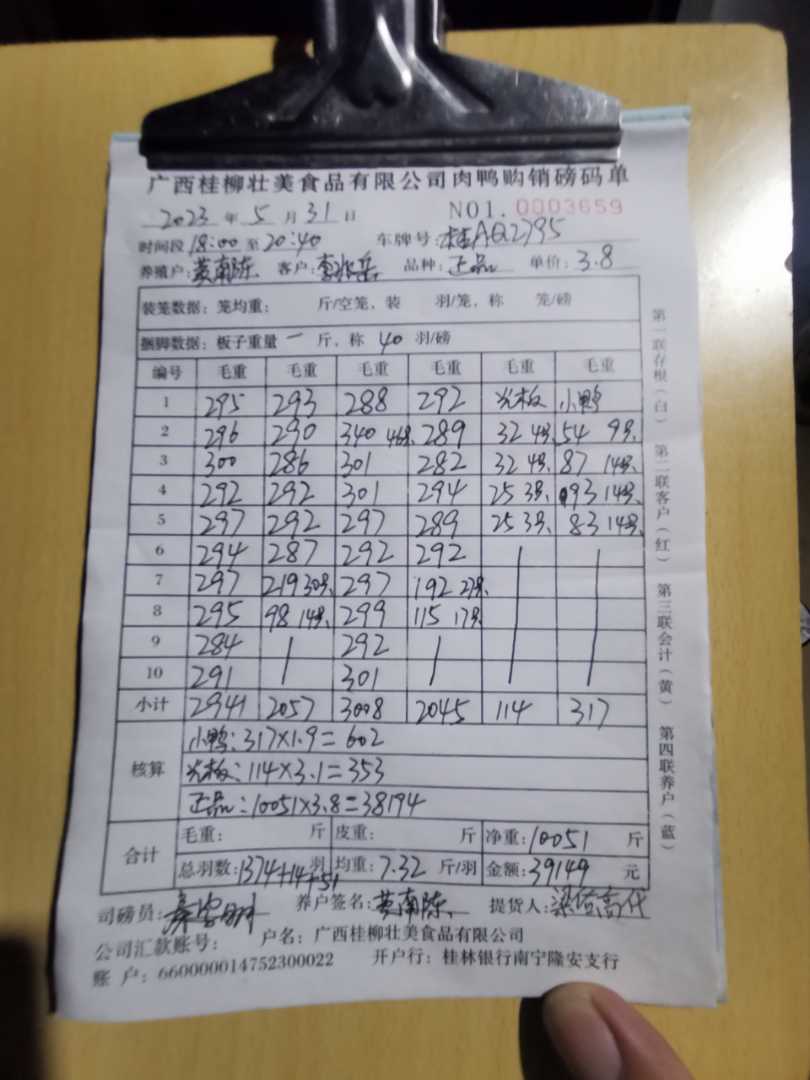 广西桂柳壮美食品有限公司肉鸭购销磅码单
2023 年 5 月 31 日 NO1. 0003659
时间段 18:00 至 20:40 车牌号: 桂AQ2795
养殖户: 黄南陈 客户: 品种: 正品 单价: 3.8
装笼数据: 笼均重: 斤/空笼, 装 羽/笼, 称 笼/磅
捆脚数据: 板子重量 一 斤, 称 40 羽/磅
编号 毛重 毛重 毛重 毛重 毛重 毛重
1 295 293 288 292 光板 小鸭
2 296 290 340 46只 289 32 4只 54 9只
3 300 286 301 282 32 4只 87 14只
4 292 292 301 294 25 3只 93 14只
5 297 292 297 289 25 3只 83 14只
6 294 287 292 292
7 297 219 30只 297 192 27只
8 295 98 14只 299 115 17只
9 284 292
10 291 301
小计 2941 2057 3008 2045 114 317
核算
小鸭: 317×1.9=602
光板: 114×3.1=353
正品: 10051×3.8=38194
合计
毛重: 斤 皮重: 斤 净重: 10051 斤
总羽数: 1374+14+51 羽 均重: 7.32 斤/羽 金额: 39149 元
司磅员: 养户签名: 黄南陈 提货人:
公司汇款账号: 户名: 广西桂柳壮美食品有限公司
账 户: 660000014752300022 开户行: 桂林银行南宁隆安支行
第一联存根(白) 第二联客户(红) 第三联会计(黄) 第四联养户(蓝)